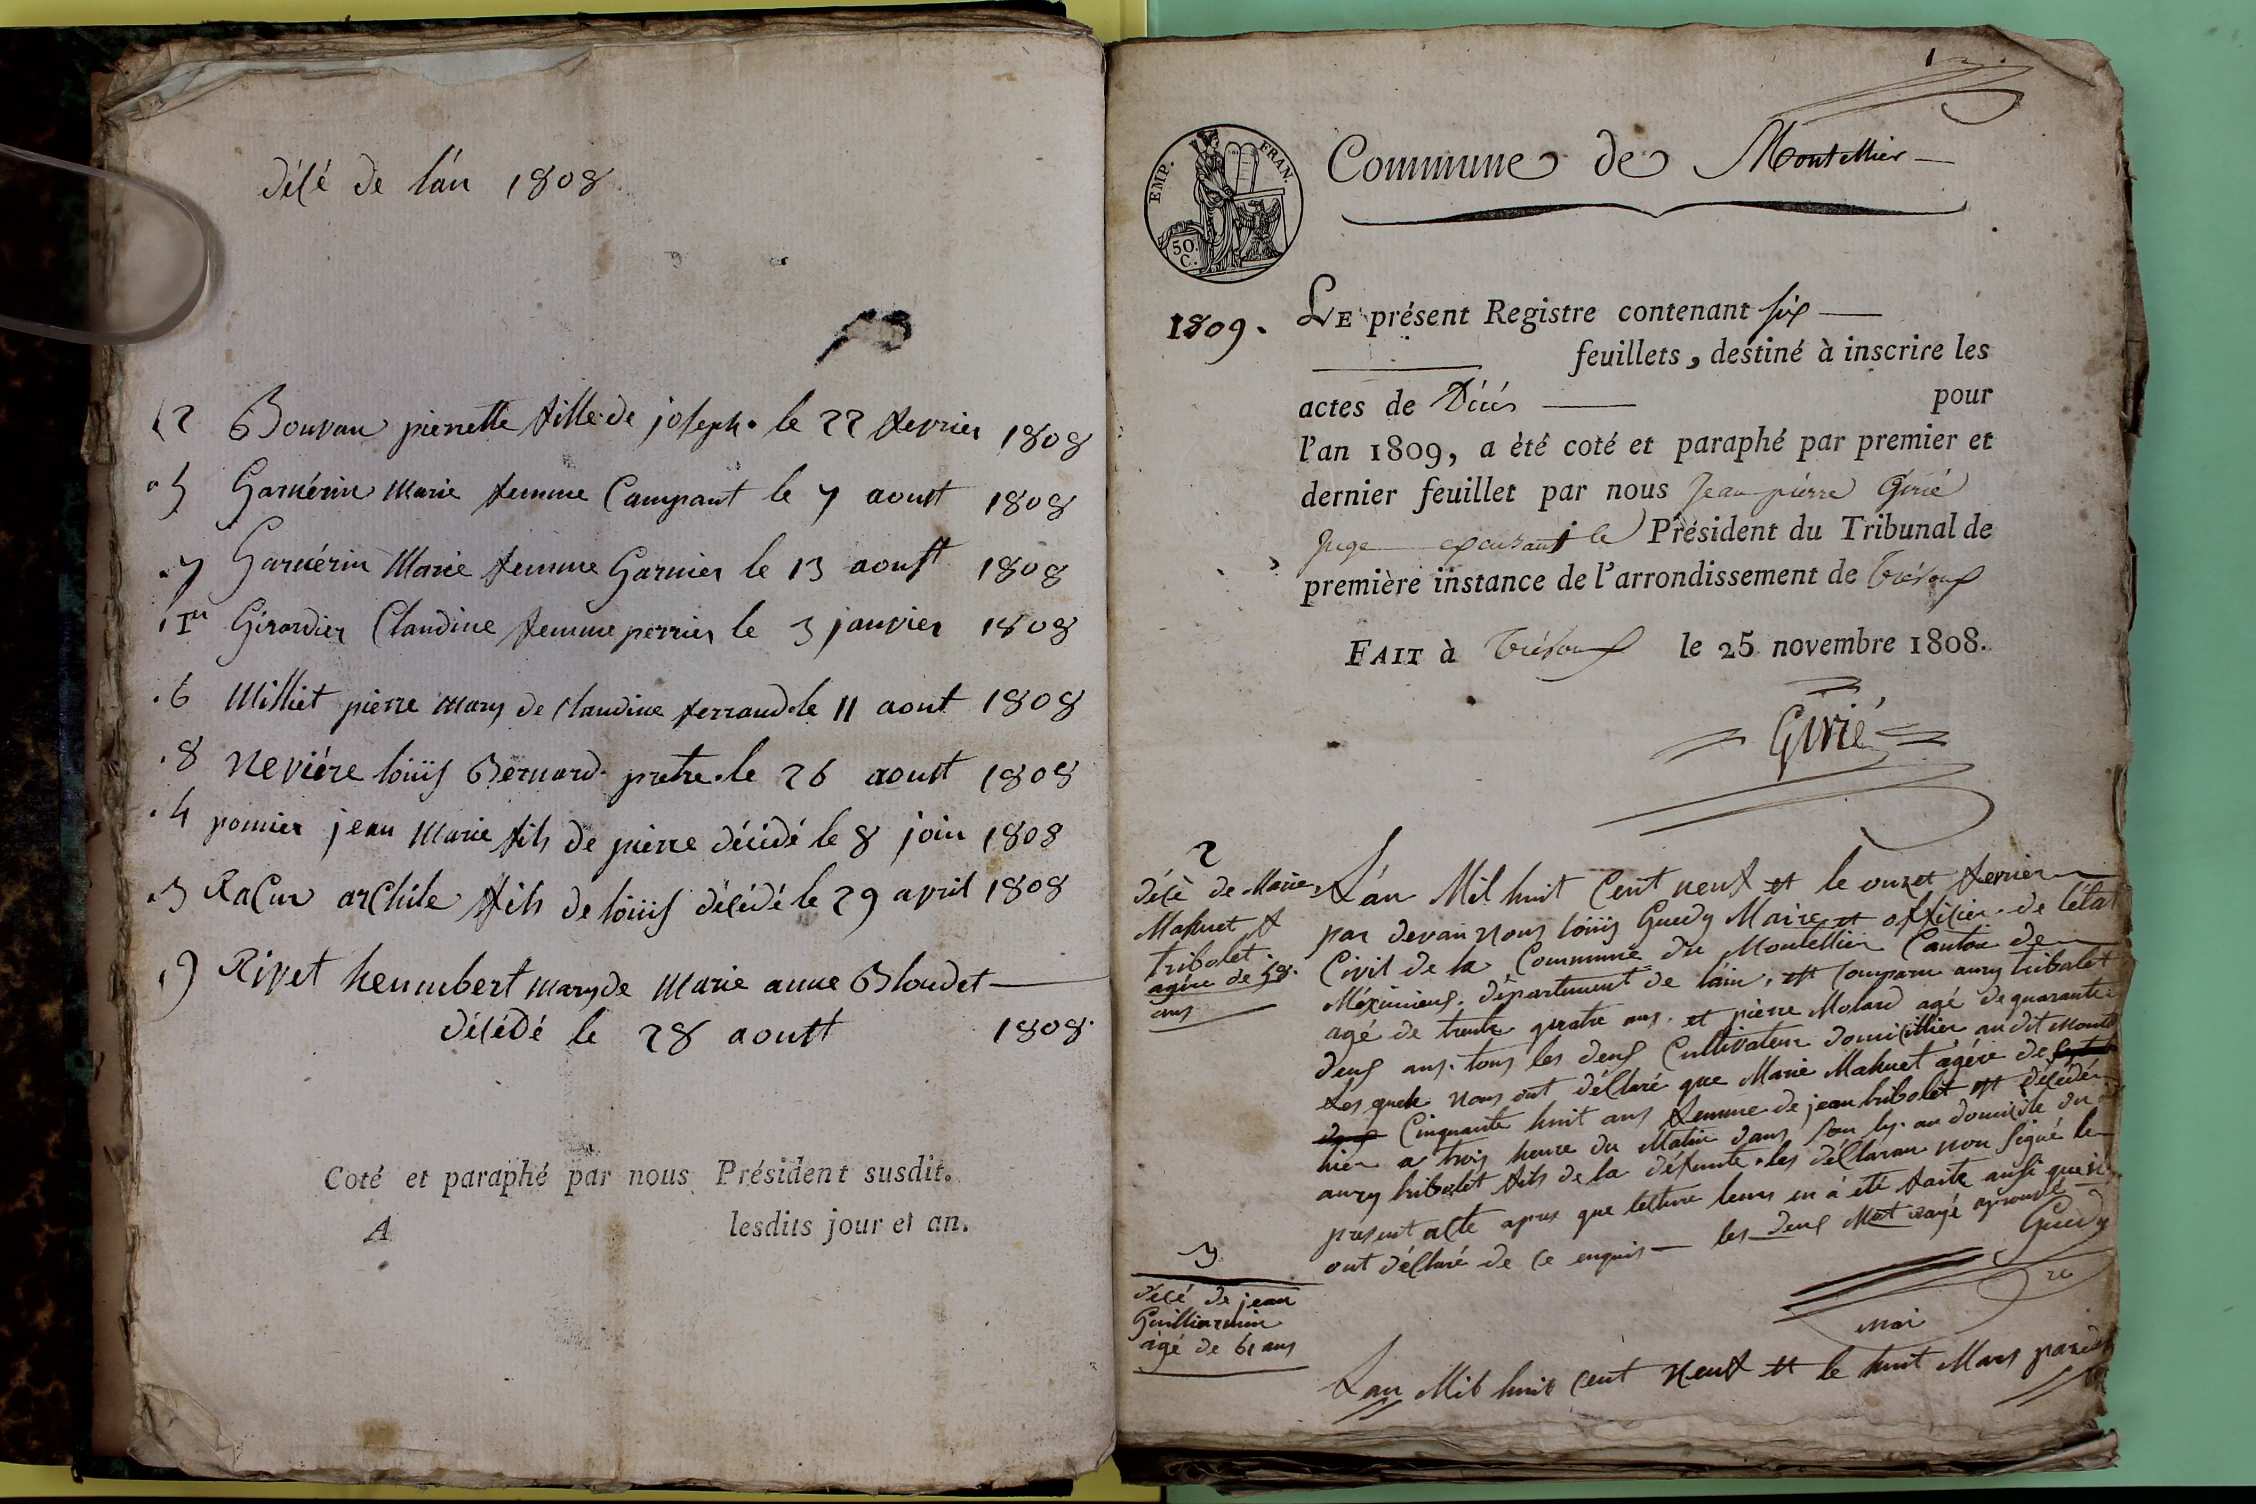 décé de l'an 1808
2 Bouvan pierrette fille de joseph. le 22 fevrier 1808
5 Garnérin Marie femme Campant le 7 aoust 1808
7 Garnérin Marie femme Garnier le 13 aoust 1808
1er Girardier Claudine femme perrier le 3 janvier 1808
6 Milliet pierre mary de Claudine ferrand. le 11 aout 1808
8 Neviére loüis Bernard. pretre. le 26 aoust 1808
4 pomier jean Marie fils de pierre décédé le 8 join 1808
3 Racur archile fils de loüis décédé le 29 april 1808
9 Rivet hennubert mary de Marie anne Bloudet
décédé le 28 aoust 1808.
Coté et paraphé par nous Président susdit.
A lesdits jour et an.
1
EMP. FRAN.
50. C.
Commune de Montellier
1809.
LE présent Registre contenant six
feuillets, destiné à inscrire les
actes de Décés pour
l'an 1809, a été coté et paraphé par premier et
dernier feuillet par nous Jean pierre Girié
Juge exerçant le Président du Tribunal de
première instance de l'arrondissement de Trévoux
FAIT à Trévoux le 25 novembre 1808.
Girié
2
décè de Marie
Mahuet f
tribolet
agée de 58.
ans
L'an Mil huit Cent neuf et le onze fevrier
par devan nous loüis Guedy Maire et offisier de l'état
Civil de la Commune du Montellier Canton de
Méximieux. département de l'ain, est Comparu aury tribolet
agé de trente quatre ans. et pierre Molard agé de quarante
deux ans. tous les deux Cultivateur domicillier au dit Monte
Les quels nous ont déclaré que Marie Mahuet agéé de
Cinquante huit ans femme de jean tribolet est décédée
hier a trois heure du Matin dans son ly. au domicile du
aury tribolet fils de la defunte. les déclaran non signé le
present acte apres que lecture leurs en á été faite ausi qu'il
ont déclaré de ce enquis — les deux Mot rayé aprouvé
Guedy
mai
3
décé de jean
Guilliermin
àgé de 61 ans
L'an Mil huit Cent Neuf et le huit Mars par